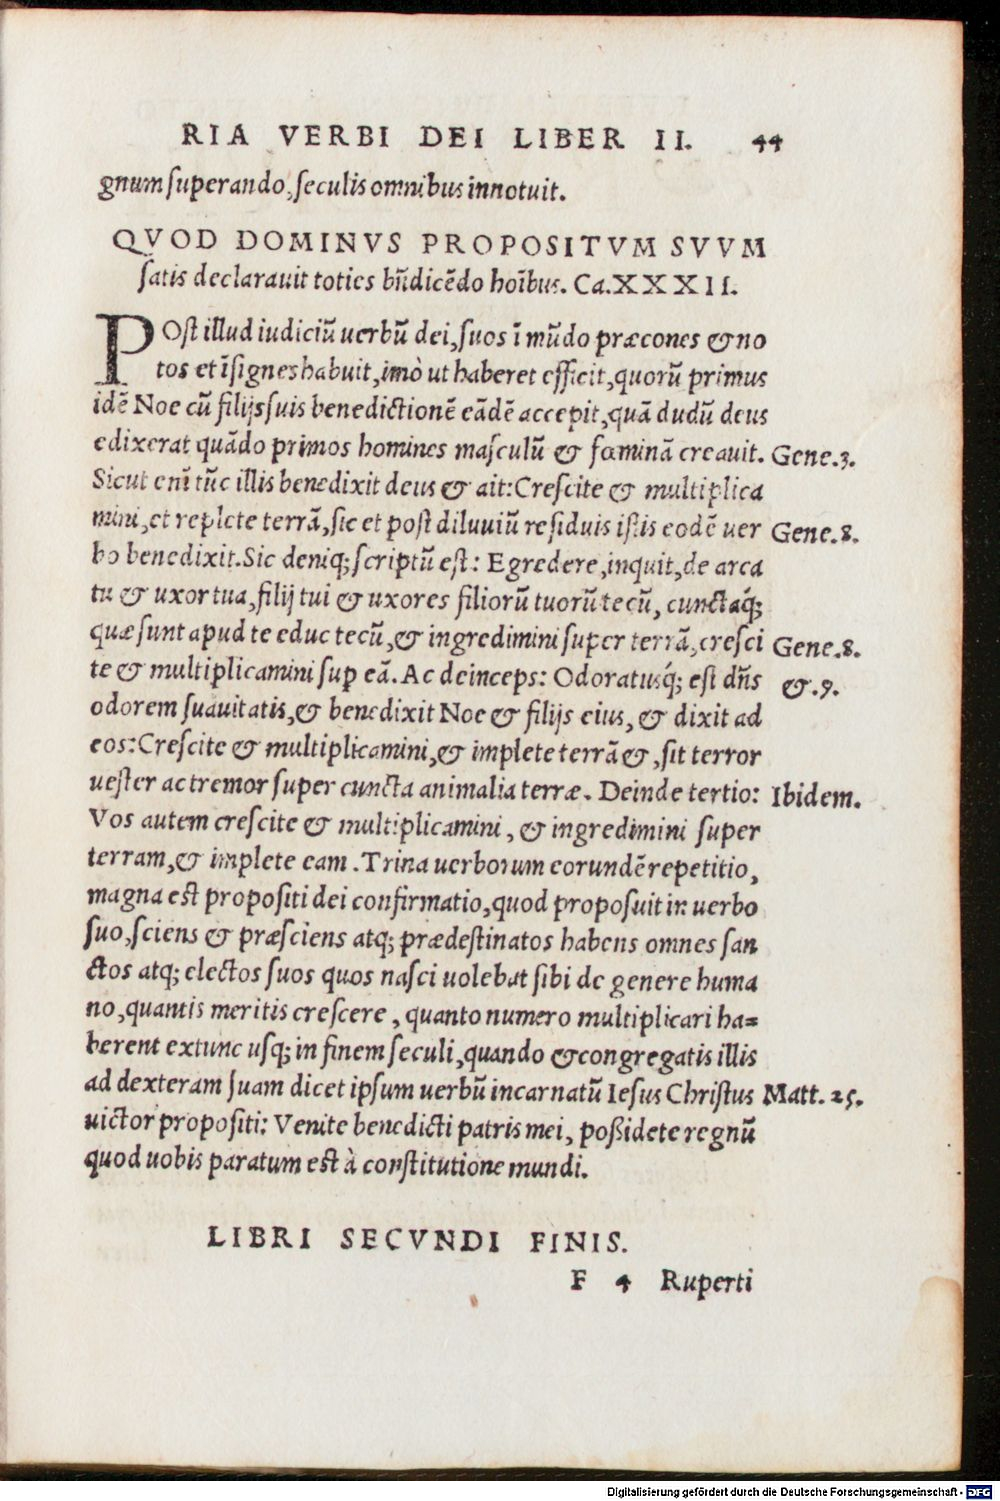 RIA VERBI DEI LIBER II. 44
gnum superando, seculis omnibus innotuit.
QVOD DOMINVS PROPOSITVM SVVM
satis declarauit toties bñdicẽdo hoĩbus. Ca. XXXII.
POst illud iudiciũ uerbũ dei, suos ĩ mũdo præcones & no
tos et ĩsignes habuit, imò ut haberet efficit, quorũ primus
idẽ Noe cũ filijs suis benedictionẽ eãdẽ accepit, quã dudũ deus
edixerat quãdo primos homines masculũ & fœminã creauit. Gene. 3.
Sicut enĩ tũc illis benedixit deus & ait: Crescite & multiplica
mini, et replete terrã, sic et post diluuiũ residuis istis eodẽ uer Gene. 8.
bo benedixit. Sic deniq; scriptũ est: Egredere, inquit, de arca
tu & uxor tua, filij tui & uxores filiorũ tuorũ tecũ, cunctaq́;
quæ sunt apud te educ tecũ, & ingredimini super terrã, cresci Gene. 8.
te & multiplicamini sup eã. Ac deinceps: Odoratusq́; est dñs &. 9.
odorem suauitatis, & benedixit Noe & filijs eius, & dixit ad
eos: Crescite & multiplicamini, & implete terrã &, sit terror
uester ac tremor super cuncta animalia terræ. Deinde tertio: Ibidem.
Vos autem crescite & multiplicamini, & ingredimini super
terram, & implete eam. Trina uerborum eorundẽ repetitio,
magna est propositi dei confirmatio, quod proposuit in uerbo
suo, sciens & præsciens atq; prædestinatos habens omnes san
ctos atq; electos suos quos nasci uolebat sibi de genere huma
no, quantis meritis crescere, quanto numero multiplicari ha=
berent extunc usq; in finem seculi, quando & congregatis illis
ad dexteram suam dicet ipsum uerbũ incarnatũ Iesus Christus Matt. 25.
uictor propositi: Venite benedicti patris mei, poßidete regnũ
quod uobis paratum est à constitutione mundi.
LIBRI SECVNDI FINIS.
F 4 Ruperti
Digitalisierung gefördert durch die Deutsche Forschungsgemeinschaft - DFG